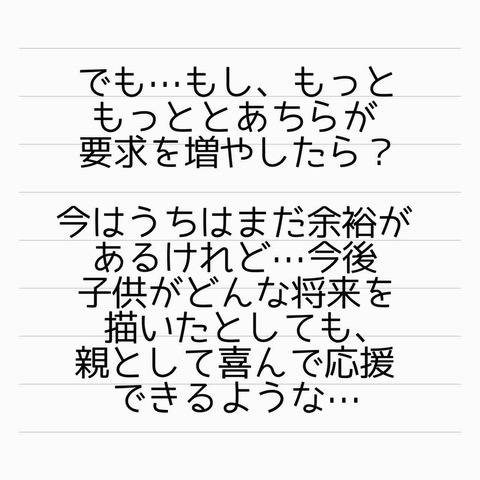 でも…もし、もっと
もっととあちらが
要求を増やしたら？
今はうちはまだ余裕が
あるけれど…今後
子供がどんな将来を
描いたとしても、
親として喜んで応援
できるような…